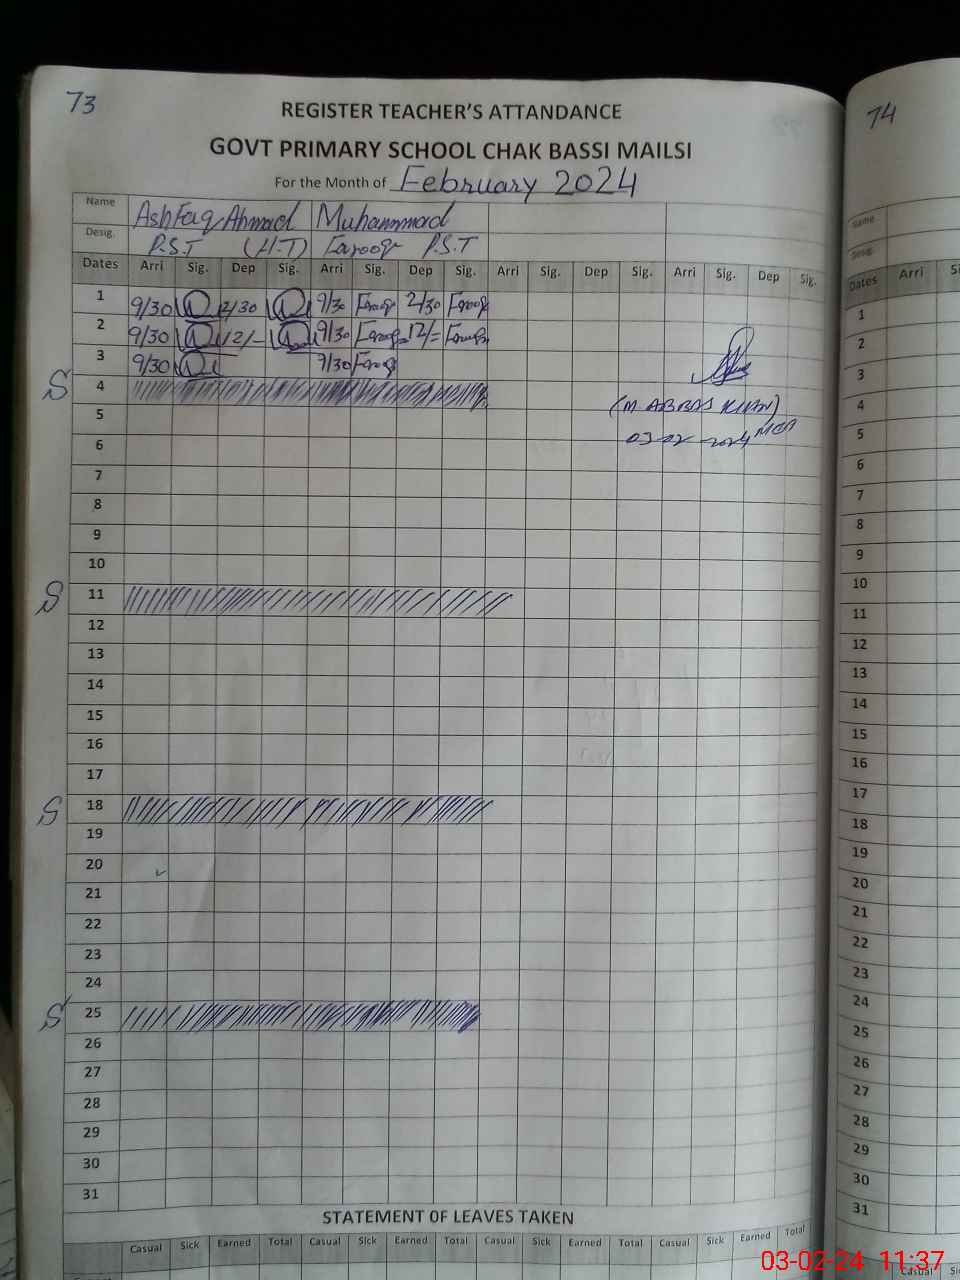 73
REGISTER TEACHER'S ATTANDANCE
GOVT PRIMARY SCHOOL CHAK BASSI MAILSI
For the Month of February 2024
Name Ashfaq Ahmad Muhammad
Desig. P.S.T (H.T) Farooq P.S.T
Dates Arri Sig. Dep Sig. Arri Sig. Dep Sig. Arri Sig. Dep Sig. Arri Sig. Dep Sig.
1 9/30 2/30 9/30 Farooq 2/30 Farooq
2 9/30 12/- 9/30 Farooq 12/= Farooq
3 9/30 9/30 Farooq
S 4 (M ABBAS KHAN)
5 03-02-2024 MEA
6
7
8
9
10
S 11
12
13
14
15
16
17
S 18
19
20
21
22
23
24
S 25
26
27
28
29
30
31
STATEMENT OF LEAVES TAKEN
Casual Sick Earned Total Casual Sick Earned Total Casual Sick Earned Total Casual Sick Earned Total
74
Name
Desig.
Dates Arri
1
2
3
4
5
6
7
8
9
10
11
12
13
14
15
16
17
18
19
20
21
22
23
24
25
26
27
28
29
30
31
Casual
03-02-24 11:37